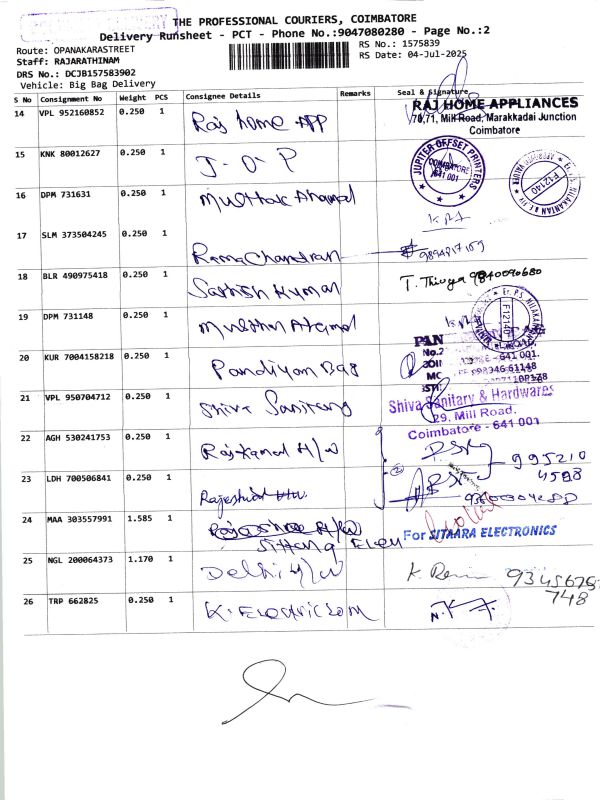 THE PROFESSIONAL COURIERS, COIMBATORE
Delivery Runsheet - PCT - Phone No.:9047080280 - Page No.:2
Route: OPANAKARASTREET
RS No.: 1575839
Staff: RAJARATHINAM
RS Date: 04-Jul-2025
DRS No.: DCJB157583902
Vehicle: Big Bag Delivery
S No Consignment No Weight PCS Consignee Details Remarks Seal & Signature
14 VPL 952160852 0.250 1 Raj home App
RAJ HOME APPLIANCES
70,71, Mill Road, Marakkadai Junction
Coimbatore
15 KNK 80012627 0.250 1 J-O-P
JUPITER OFFSET PRINTERS
COIMBATORE
641 001
F12140
16 DPM 731631 0.250 1
17 SLM 373504245 0.250 1 Rama Chandran
18 BLR 490975418 0.250 1 Sathish Kumar T. Thivya 9840090680
19 DPM 731148 0.250 1
F12140
PAN
No.2
641 001.
20 KUR 7004158218 0.250 1 Pandiyan Bag
21 VPL 950704712 0.250 1 Shiva Sanitary
Shiva Sanitary & Hardwares
29. Mill Road.
Coimbatore - 641 001
22 AGH 530241753 0.250 1 Rajkamal H/W
995210
4598
23 LDH 700506841 0.250 1
24 MAA 303557991 1.585 1
For SITAARA ELECTRONICS
25 NGL 200064373 1.170 1 Delhi H/W
9345676
748
26 TRP 662825 0.250 1